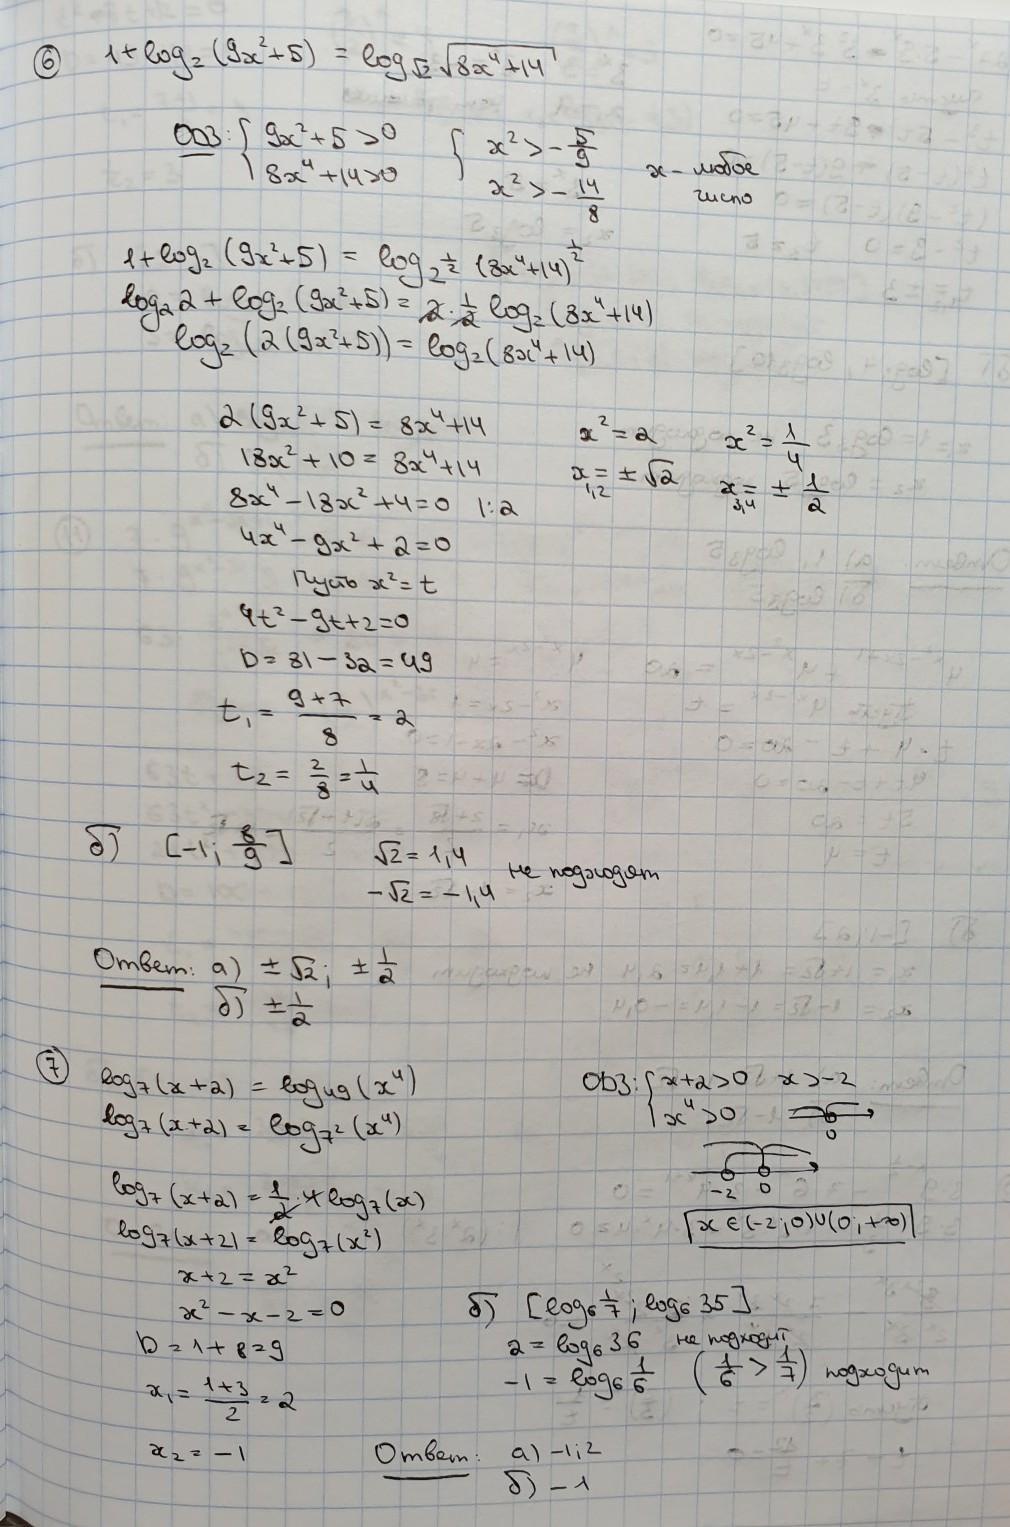 6 1+log₂(9x²+5) = log_√2 √(8x⁴+14)
ОДЗ: { 9x²+5>0 { x²>-5/9
8x⁴+14>0 x²>-14/8 x - любое число
1+log₂(9x²+5) = log_2^(1/2) (8x⁴+14)^(1/2)
log₂2 + log₂(9x²+5) = 2·1/2 log₂(8x⁴+14)
log₂(2(9x²+5)) = log₂(8x⁴+14)
2(9x²+5) = 8x⁴+14
18x²+10 = 8x⁴+14
8x⁴-18x²+4=0 |:2
4x⁴-9x²+2=0
Пусть x²=t
4t²-9t+2=0
D=81-32=49
t₁= (9+7)/8 = 2
t₂ = 2/8 = 1/4
x²=2 x²=1/4
x₁,₂=±√2 x₃,₄=±1/2
б) [-1; 8/9] √2=1,4
-√2=-1,4 не подходят
Ответ: а) ±√2; ±1/2
б) ±1/2
7 log₇(x+2) = log₄₉(x⁴)
log₇(x+2) = log_7²(x⁴)
log₇(x+2) = 1/2·4 log₇(x)
log₇(x+2) = log₇(x²)
x+2=x²
x²-x-2=0
D=1+8=9
x₁= (1+3)/2 = 2
x₂ = -1
ОДЗ: { x+2>0 x>-2
x⁴>0
0
-2 0
x∈(-2;0)∪(0;+∞)
б) [log₆ 1/7; log₆ 35]
2=log₆36 не подходит
-1=log₆ 1/6 (1/6 > 1/7) подходит
Ответ: а) -1; 2
б) -1